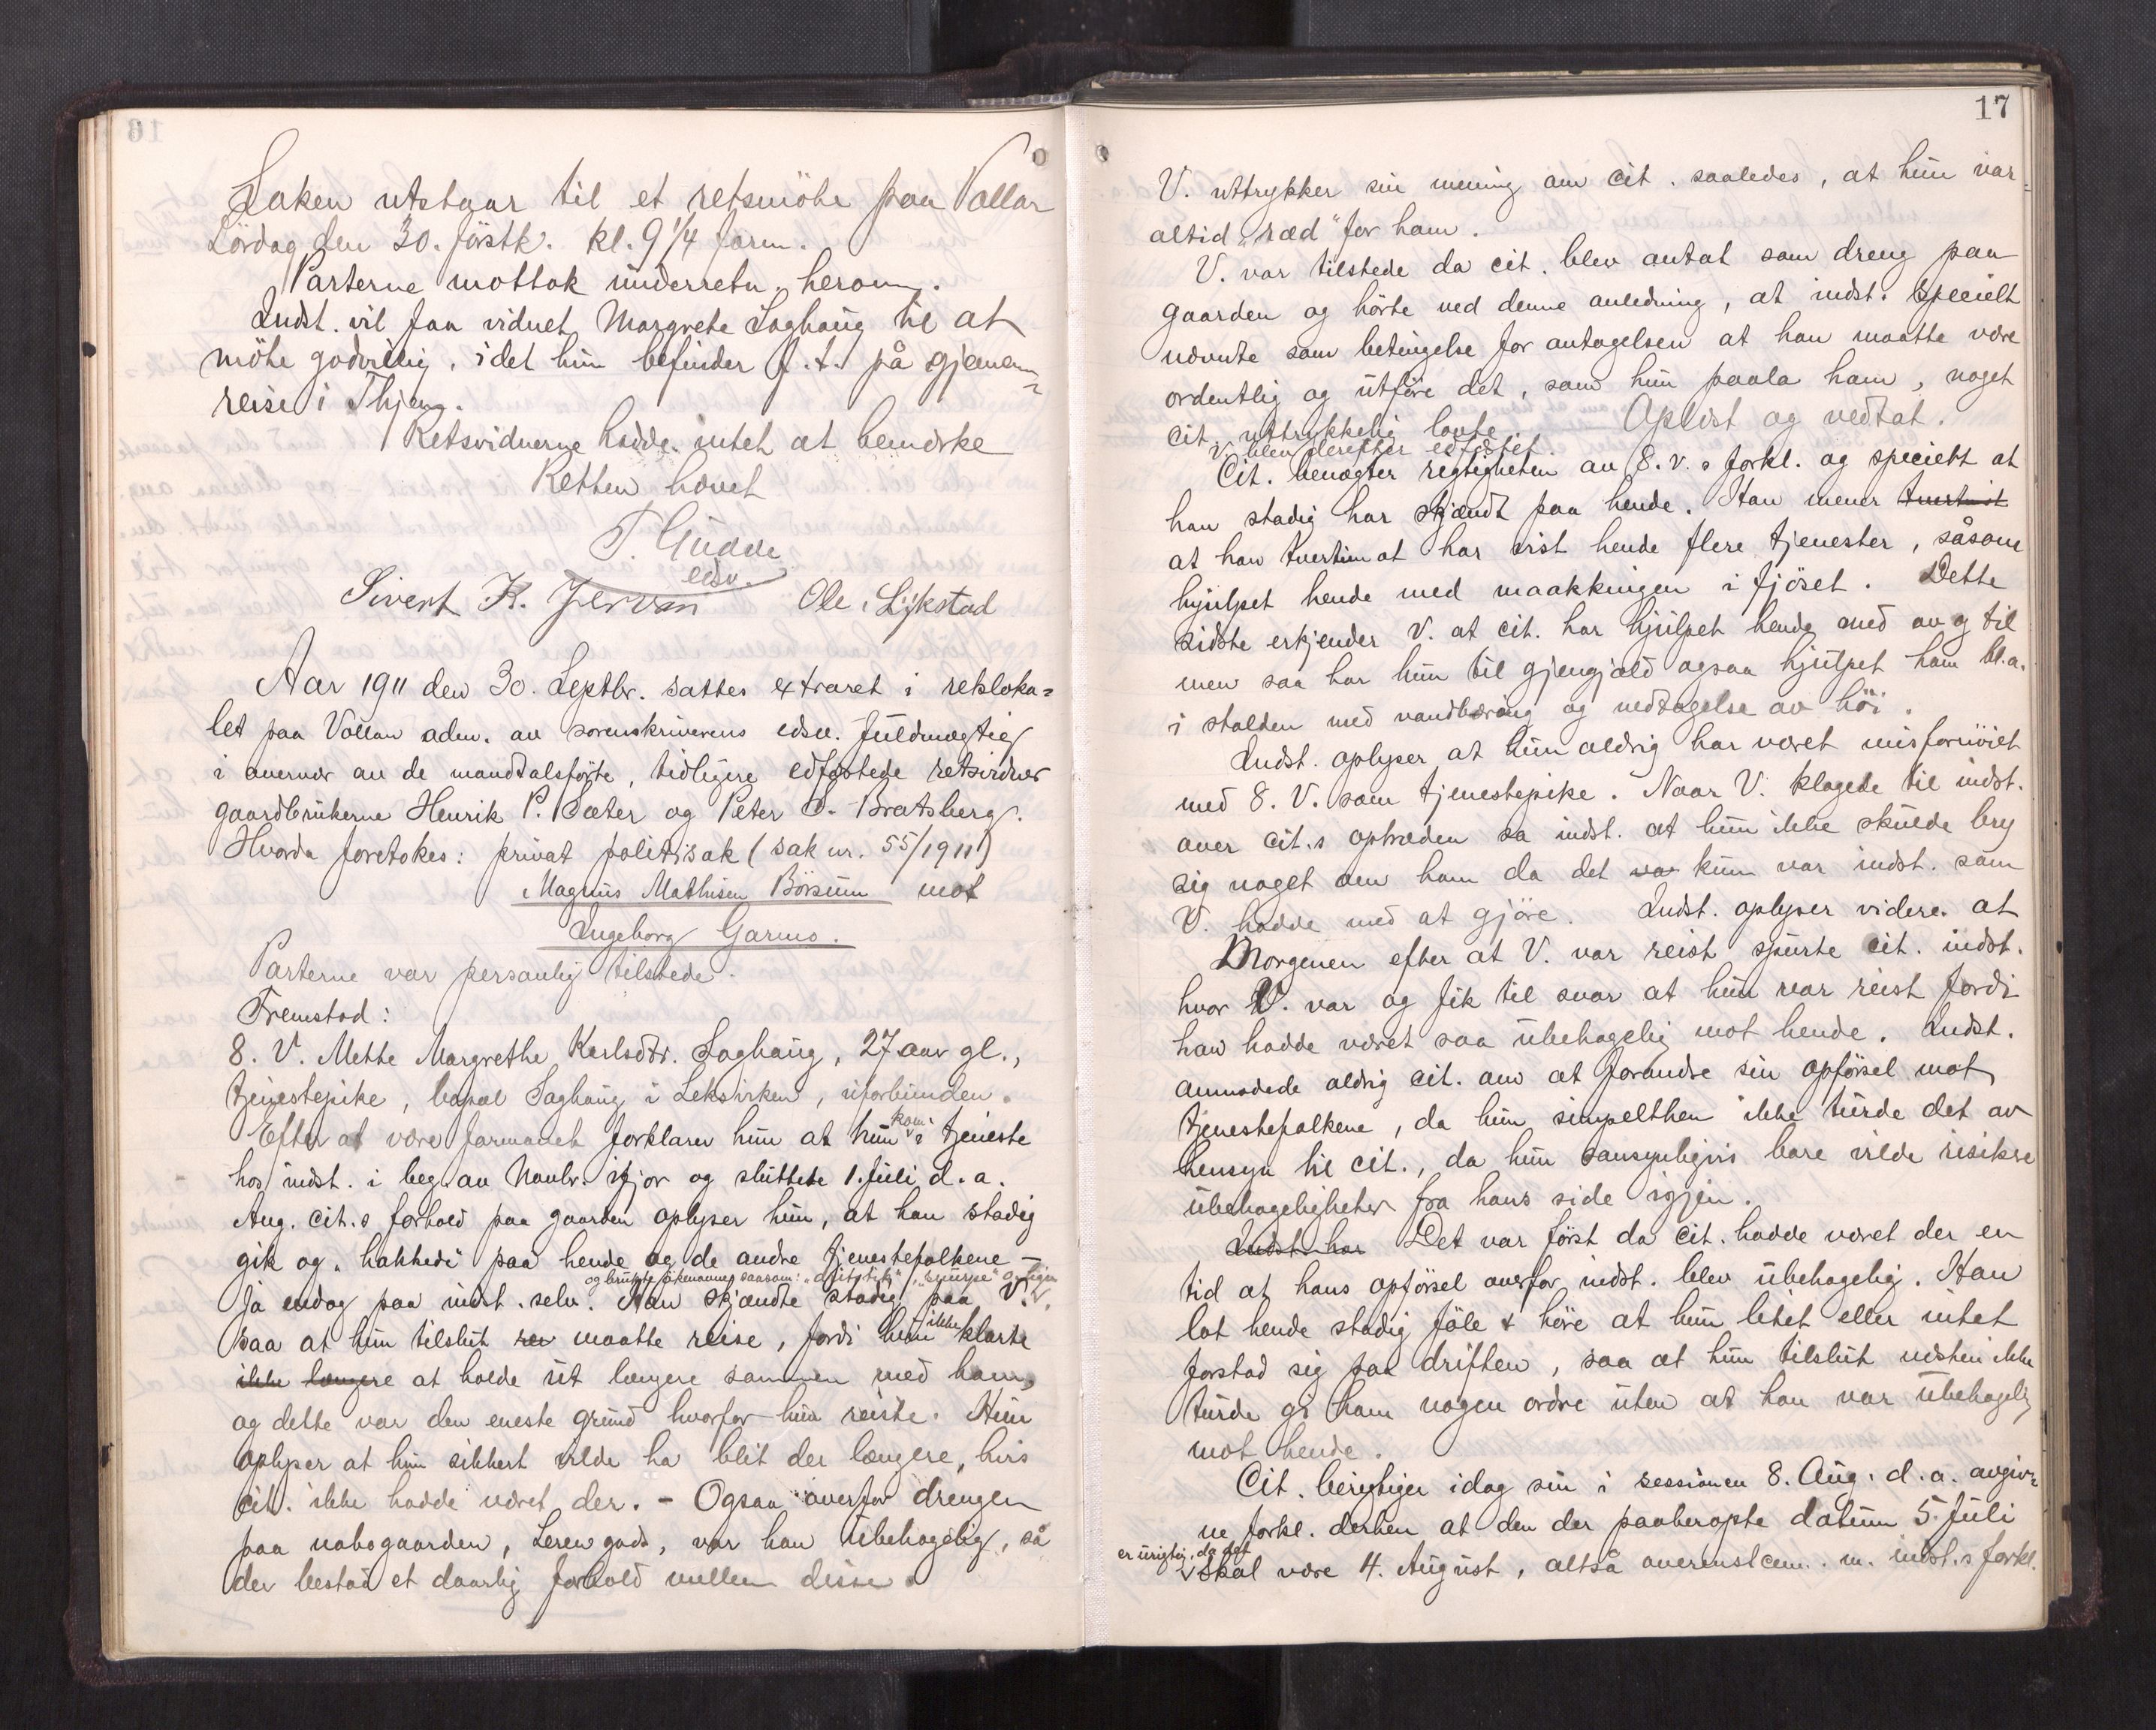 Saken utstaar til et retsmöte paa Vollan
Lördag den 30. förstk. kl. 9 1/4 form.
Parterne mottok underretn. herom.
Indst. vil faa vidnet Margrete Saghaug til at
möte godvillig, idet hun befinder f. t. på gjennem=
reise i Thjem.
Retsvidnerne hadde intet at bemerke
Retten hævet
T. Gudde
edsv.
Sivert K. Jervan Ole Lykstad
Aar 1911 den 30. Septbr. sattes extraret i retsloka=
let paa Vollan adm. av sorenskriverens edsv. fuldmægtig
i overvær av de mandtalsförte, tidligere edfæstede retsvidner
gaardbrukerne Henrik P. Sæter og Peter O. Bratsberg.
Hvorda foretokes: privat politisak (sak nr. 55/1911)
Magnus Mathisen Börsum mot
Ingeborg Garmo.
Parterne var personlig tilstede.
Fremstod:
8. V. Mette Margrethe Karlsdtr. Saghaug, 27 aar gl.,
tjenestepike, bopæl Saghaug i Leksviken, uforbunden.
Efter at være formanet forklarer hun at hun kom i tjeneste
hos indst. i beg. av Novbr. ifjor og sluttete 1. Juli d. a.
Ang. cit.s forhold paa gaarden oplyser hun, at han stadig
gik og "hakkede" paa hende og de andre tjenestefolkene -
og brukte ökenavne saasom:
ja endog paa indst. selv. Han skjændte stadig paa V.
saa at hun tilslut rei maatte reise, fordi hun ikke klarte
ikke længere at holde ut længere sammen med ham,
og dette var den eneste grund hvorfor hun reiste. Hun
oplyser at hun sikkert vilde ha blit der længere, hvis
cit. ikke hadde været der. - Ogsaa overfor drengen
paa nabogaarden, Leren gods, var han ubehagelig, så
der bestod et daarlig forhold mellem disse.
17
V. uttrykker sin mening om cit. saaledes, at hun var
altid "ræd" for ham.
V. var tilstede da cit. blev antat som dreng paa
gaarden og hörte ved denne anledning, at indst. specielt
nævnte som betingelse for antagelsen at han maatte være
ordentlig og utföre det, som hun paala ham, noget
cit. uttrykkelig lovte. Oplæst og vedtat.
V. blev derefter edfæstet.
Cit. benægter regtigheten av 8. V.s forkl. og specielt at
han stadig har skjændt paa hende. Han mener tvertimot
at han tvertimot har vist hende flere tjenester, såsom
hjulpet hende med maakkingen i fjöset. Dette
sidste erkjender V. at cit. har hjulpet hende med av og til
men saa har hun til gjengjæld ogsaa hjulpet ham bl.a.
i stalden med vandbæring og nedtagelse av höi.
Indst. oplyser at hun aldrig har været misfornöiet
med 8. V. som tjenestepike. Naar V. klagede til indst.
over cit.s optræden sa indst. at hun ikke skulde bry
sig noget om ham da det va kun var indst. som
V. hadde med at gjöre. Indst. oplyser videre at
Morgenen efter at V. var reist spurte cit. indst.
hvor V. var og fik til svar at hun var reist fordi
han hadde været saa ubehagelig mot hende. Indst.
anmodede aldrig cit. om at forandre sin opförsel mot
tjenestefolkene, da hun simpelthen ikke turde det av
hensyn til cit., da hun sansynligvis bare vilde risikere
ubehageligheter fra hans side igjen.
Indst. har Det var först da cit. hadde været der en
tid at hans opförsel overfor indst. blev ubehagelig. Han
lot hende stadig föle & höre at hun litet eller intet
forstod sig paa driften, saa at hun tilslut næsten ikke
turde gi ham nogen ordre uten at han var ubehagelig
mot hende.
Cit. berigtiger idag sin i sessionen 8. Aug. d. a. avgiv=
ne forkl. derhen at den der paaberopte datum 5. Juli
er urigtig, da det
skal være 4. August, altså overenstem. m. indst.s forkl.